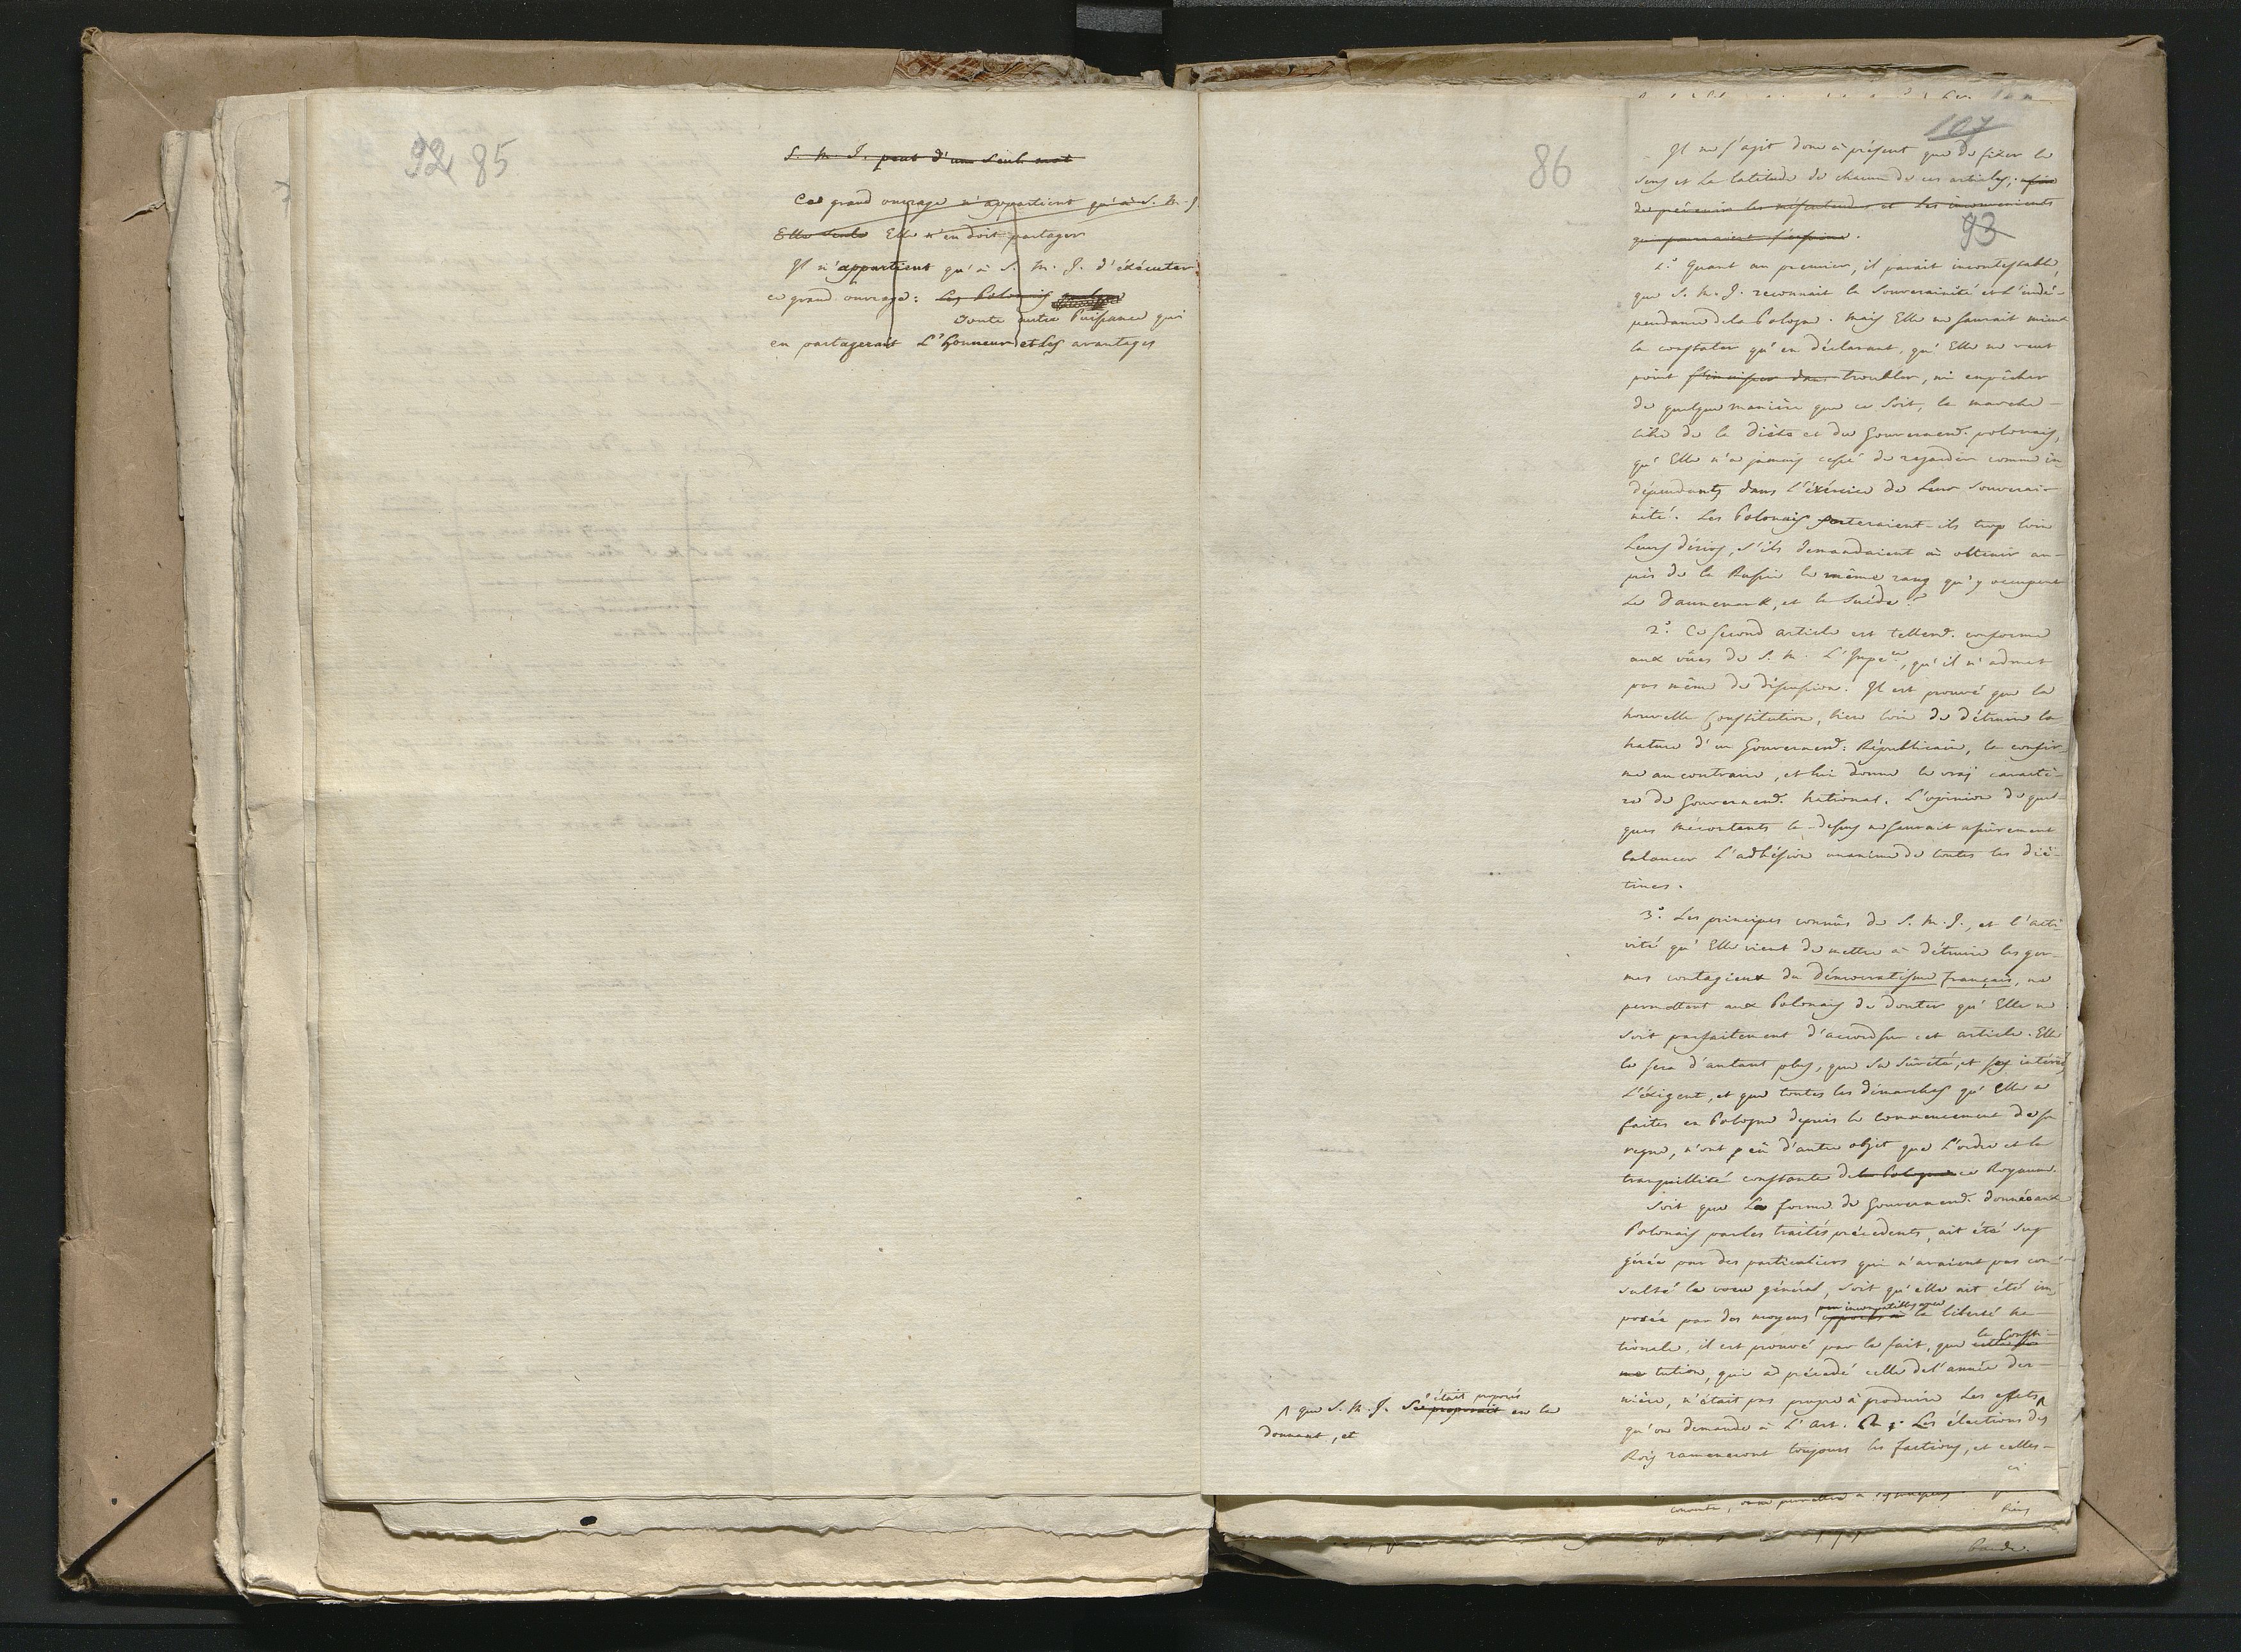 92 85
S. M. I. peut d'un seul mot
Ce grand ouvrage n'appartient qu'à S. M. I.
Elle seule Elle n'en doit partager
Il n'appartient qu'à S. M. I. d'éxécuter
ce grand ouvrage: Les Polonais
Toute autre Puissance qui
en partagerait L'honneur et les avantages
86
107
Il ne s'agit donc à présent que de fixer le
sens et la latitude de chacun de ces articles; afin
de prévenir les mésentendus et les inconvenients
qui pourraient s'ensuivre.
93
1.° Quant au premier, il parait incontestable,
que S. M. I. reconnait la Souveraineté et L'indé-
pendance de la Pologne. Mais Elle ne saurait mieux
la constater qu'en déclarant, qu'Elle ne veut
point s'immiscer dans troubler, ni empêcher
de quelque manière que ce soit, la marche
libre de la Diète et du Gouvernemt. polonais,
qu'Elle n'a jamais cessé de regarder comme in-
dépendants dans l'éxércice de Leur Souverai-
neté. Les Polonais porteraient-ils trop loin
Leurs désirs, s'ils demandaient à obtenir au-
près de la Russie le même rang qu'y occupent
Le Dannemark, et la Suède?
2.° Ce second article est tellemt. conforme
aux vües de S. M. L'Impce., qu'il n'admet
pas même de discussion. Il est prouvé que la
nouvelle Constitution, bien loin de détruire la
nature d'un Gouvernemt. Républicain, la confir-
me au contraire, et lui donne le vrai caractè-
re de Gouvernemt. national. L'opinion de quel-
ques mécontents la-dessus ne saurait assurement
balancer L'adhésion unanime de toutes les dié-
tines.
3.° Les principes connûs de S. M. I., et l'acti
vité qu'Elle vient de mettre à détruire les ger-
mes contagieux du démocratisme français, ne
permettent aux Polonais de douter qu'Elle ne
soit parfaitement d'accord sur cet article. Elle
le sera d'autant plus, que sa sûreté, et ses intérêts
L'éxigent, et que toutes les démarches qu'Elle a
faites en Pologne depuis le commencement de son
regne, n'ont eû d'autre objet que L'ordre et la
tranquillité constante de la Pologne ce Royaume.
Soit que La forme de Gouvernemt. donnée aux
Polonais par les traités précedents, ait été sug
gérée par des particuliers qui n'avaient pas con-
sulté le voeu général, soit qu'elle ait été im
posée par des moyens opposés à peu incompatibles avec la liberté na-
tionale, il est prouvé par le fait, que la Consti-
tution, qui a précédé celle de l'année der-
nière, n'était pas propre à produire Les effets ^
^ que S. M. I. Se proposait s'était proposés en la
donnant, et
qu'on demande à L'Art. Les élections des
Rois rameneront toujours les factions, et celles-
ci